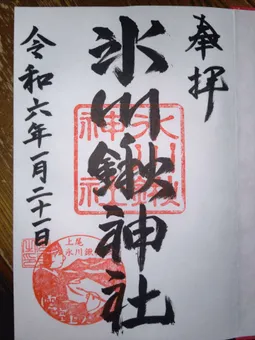 奉拝
氷川鍬神社
氷川鍬神社
令和六年一月二十一日
上尾
氷川鍬